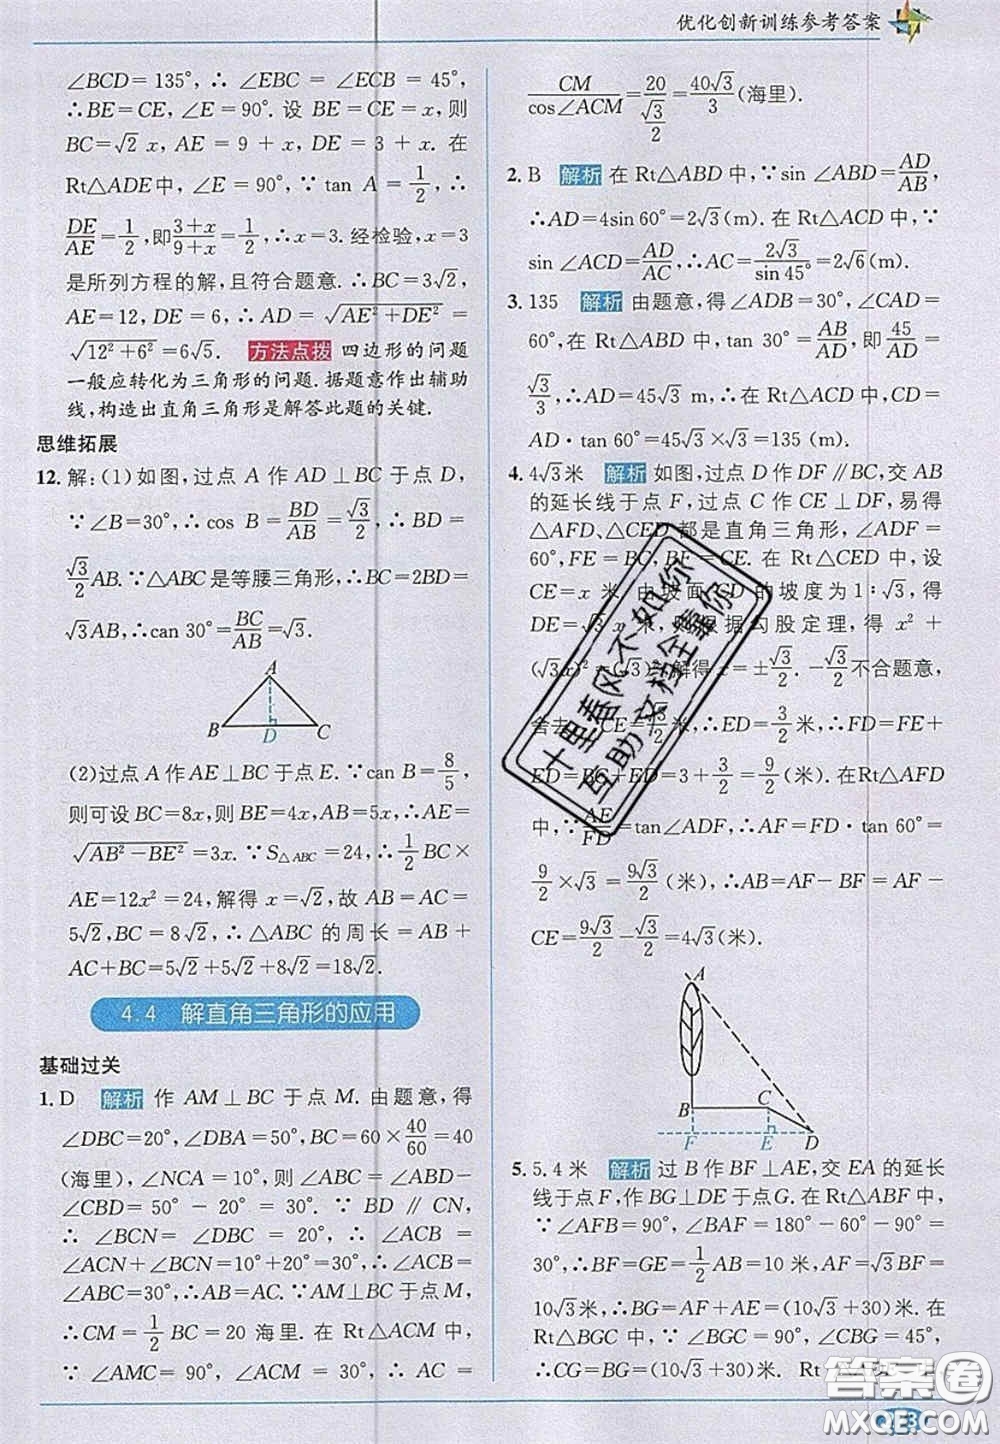 优化创新训练参考答案
∠BCD=135°,∴∠EBC=∠ECB=45°,
∴BE=CE,∠E=90°.设 BE=CE=x,则
BC=√2 x,AE=9+x,DE=3+x.在
Rt△ADE中,∠E=90°,∵tan A=1/2,∴
DE/AE=1/2,即(3+x)/(9+x)=1/2,∴x=3.经检验,x=3
是所列方程的解,且符合题意.∴BC=3√2,
AE=12,DE=6,∴AD=√(AE²+DE²)=
√(12²+6²)=6√5. 方法点拨 四边形的问题
一般应转化为三角形的问题.据题意作出辅助
线,构造出直角三角形是解答此题的关键.
思维拓展
12.解:(1)如图,过点 A 作 AD⊥BC 于点 D,
∵∠B=30°,∴cos B=BD/AB=√3/2,∴BD=
√3/2 AB.∵△ABC是等腰三角形,∴BC=2BD=
√3AB,∴can 30°=BC/AB=√3.
A
B D C
(2)过点A作AE⊥BC于点E.∵can B=8/5,
则可设BC=8x,则BE=4x,AB=5x,∴AE=
√(AB²-BE²)=3x.∵S△ABC=24,∴1/2 BC×
AE=12x²=24,解得x=√2,故AB=AC=
5√2,BC=8√2,∴△ABC的周长=AB+
AC+BC=5√2+5√2+8√2=18√2.
4.4 解直角三角形的应用
基础过关
1.D 解析 作 AM⊥BC 于点 M.由题意,得
∠DBC=20°,∠DBA=50°,BC=60×40/60=40
(海里),∠NCA=10°,则∠ABC=∠ABD-
∠CBD=50°-20°=30°.∵BD∥CN,
∴∠BCN=∠DBC=20°,∴∠ACB=
∠ACN+∠BCN=10°+20°=30°,∴∠ACB=
∠ABC=30°,∴AB=AC.∵AM⊥BC于点M,
∴CM=1/2 BC=20 海里.在 Rt△ACM 中,
∵∠AMC=90°,∠ACM=30°,∴AC=
CM/cos∠ACM=20/(√3/2)=40√3/3(海里).
2.B 解析 在Rt△ABD中,∵sin∠ABD=AD/AB,
∴AD=4sin 60°=2√3(m).在Rt△ACD中,∵
sin∠ACD=AD/AC,∴AC=2√3/sin 45°=2√6(m).
3.135 解析 由题意,得∠ADB=30°,∠CAD=
60°,在Rt△ABD中,tan 30°=AB/AD,即45/AD=
√3/3,∴AD=45√3.在Rt△ACD中,CD=
AD·tan 60°=45√3×√3=135(m).
4.4√3米 解析 如图,过点D作DF∥BC,交AB
的延长线于点F,过点C作CE⊥DF,易得
△AFD、△CED都是直角三角形,∠ADF=
60°,FE=BC,BF=CE.在Rt△CED中,设
CE=x 米,由坡面CD的坡度为1∶√3,得
DE=√3x 米,则根据勾股定理,得 x²+
(√3x)²=(√3)²,解得x=±√3/2.-√3/2不合题意,
舍去,∴CE=√3/2米,∴ED=3/2米,∴FD=FE+
ED=BC+ED=3+3/2=9/2(米).在Rt△AFD
中,∵AF/FD=tan∠ADF,∴AF=FD·tan 60°=
9/2×√3=9√3/2(米),∴AB=AF-BF=AF-
CE=9√3/2-√3/2=4√3(米).
A
B C
F E D
5.5.4米 解析 过B作BF⊥AE,交EA的延长
线于点F,作BG⊥DE于点G.在Rt△ABF中,
∵∠AFB=90°,∠BAF=180°-60°-90°=
30°,∴BF=GE=1/2 AB=10米,AF=√3BF=
10√3米,∴BG=AF+AE=(10√3+30)米.在
Rt△BGC中,∵∠BGC=90°,∠CBG=45°,
∴CG=BG=(10√3+30)米.
十里春风不如你
互助文档全靠你
答案圈
MXQE.COM